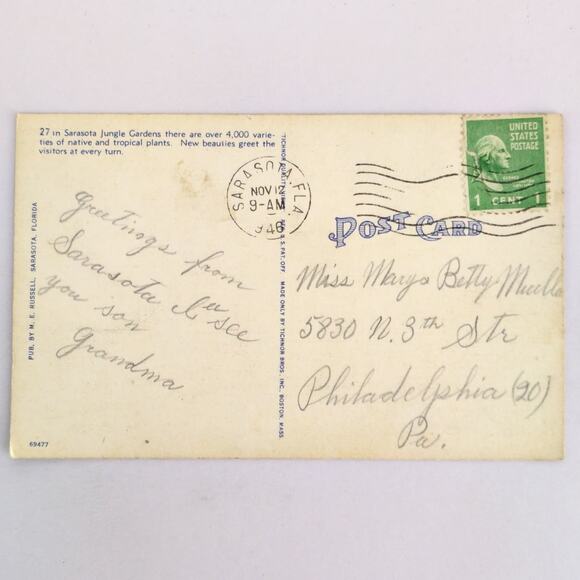 27 in Sarasota Jungle Gardens there are over 4,000 varie-
ties of native and tropical plants. New beauties greet the
visitors at every turn.
PUB. BY M. E. RUSSELL, SARASOTA, FLORIDA
Greetings from
Sarasota I'll see
you son
Grandma
69477
TICHNOR QUALITY REG. U. S. PAT. OFF. MADE ONLY BY TICHNOR BROS., INC., BOSTON, MASS.
SARASOTA, FLA.
NOV 12
9-AM
1946
UNITED
STATES
POSTAGE
1 CENT 1
POST CARD
Miss Mary Betty
5830 N. 3th Str
Philadelphia (20)
Pa.